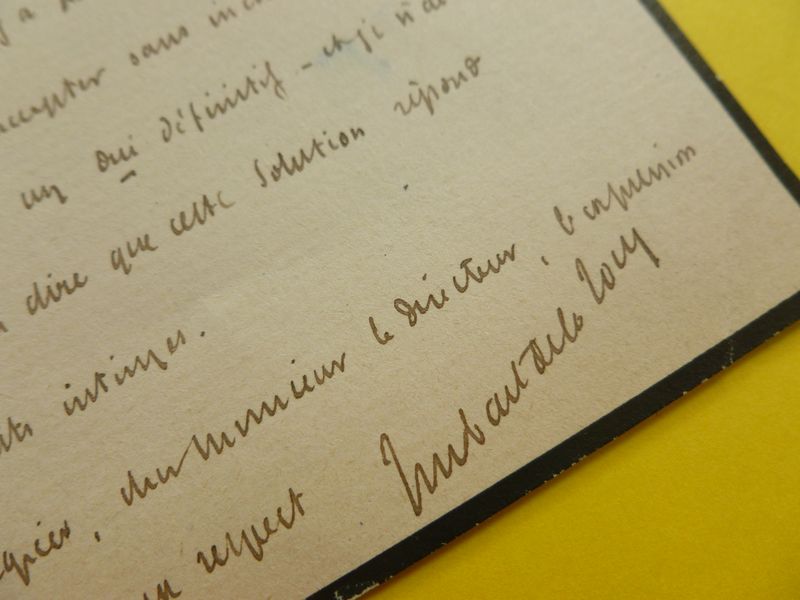 y a
accepter sans
un oui définitif - et je n'ai
dire que cette solution répond
intimes.
, cher Monsieur le Directeur, l'expression
respect
Imbart de la Tour